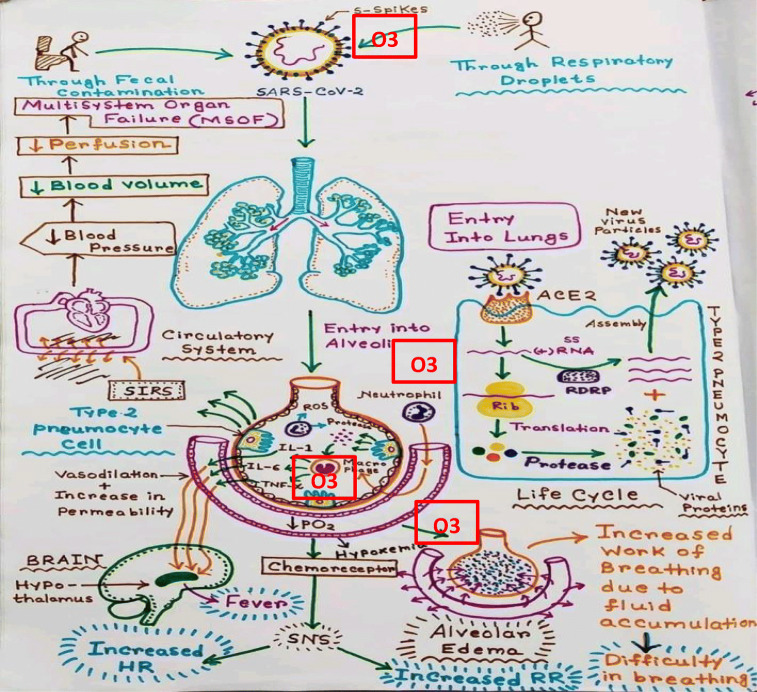 S-Spikes
O3
Through Fecal
Contamination
SARS-CoV-2
Through Respiratory
Droplets
Multisystem Organ
Failure (MSOF)
↓ Perfusion
↓ Blood volume
↓ Blood
Pressure
Circulatory
System
SIRS
Entry
Into Lungs
New
virus
Particles
ACE2
Assembly
SS
(+) RNA
RDRP
Rib
Translation
+
Protease
Viral
Proteins
TYPE 2 PNEUMOCYTE
Life Cycle
Entry into
Alveoli
O3
Neutrophil
Type-2
pneumocyte
Cell
ROS
Protease
IL-1
IL-6
TNF
Macro
phage
O3
Vasodilation
+
Increase in
Permeability
↓PO2
Hypoxemia
O3
Chemoreceptor
BRAIN
Hypo
thalamus
Fever
SNS
Increased
HR
Increased RR
Alveolar
Edema
Increased
Work of
Breathing
due to
fluid
accumulation
Difficulty
in breathing